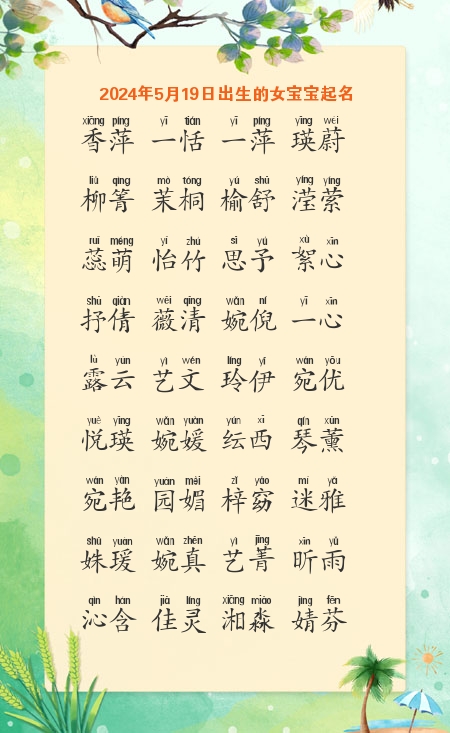 2024年5月19日出生的女宝宝起名
xiāng píng yī tián yī píng yīng wèi
香萍 一恬 一萍 瑛蔚
liǔ qìng mò tóng yú shū yíng yíng
柳箐 茉桐 榆舒 滢萦
ruǐ méng yí zhú sī yǔ xù xīn
蕊萌 怡竹 思予 絮心
shū qiàn wēi qīng wǎn ní yī xīn
抒倩 薇清 婉倪 一心
lù yún yì wén líng yī wǎn yōu
露云 艺文 玲伊 宛优
yuè yīng wǎn yuàn yún xī qín xūn
悦瑛 婉媛 纭西 琴薰
wǎn yàn yuán mèi zǐ yǎo mí yǎ
宛艳 园媚 梓窈 迷雅
shū yuàn wǎn zhēn yì jīng xīn yǔ
姝瑗 婉真 艺菁 昕雨
qìn hán jiā líng xiāng miǎo jìng fēn
沁含 佳灵 湘淼 婧芬